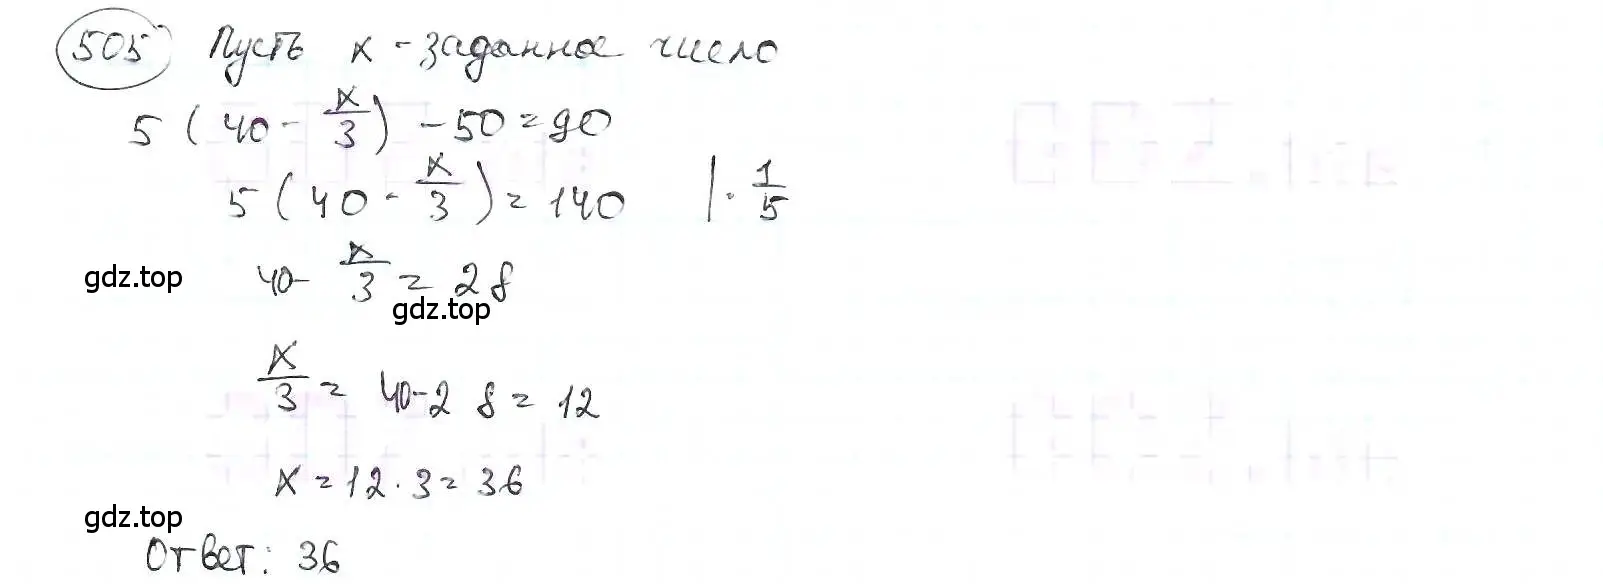 505 Пусть x - заданное число
5 (40 - x/3) - 50 = 90
5 (40 - x/3) = 140 | · 1/5
gdz.top
40 - x/3 = 28
gdz.top
x/3 = 40 - 28 = 12
x = 12 · 3 = 36
gdz.top
Ответ: 36